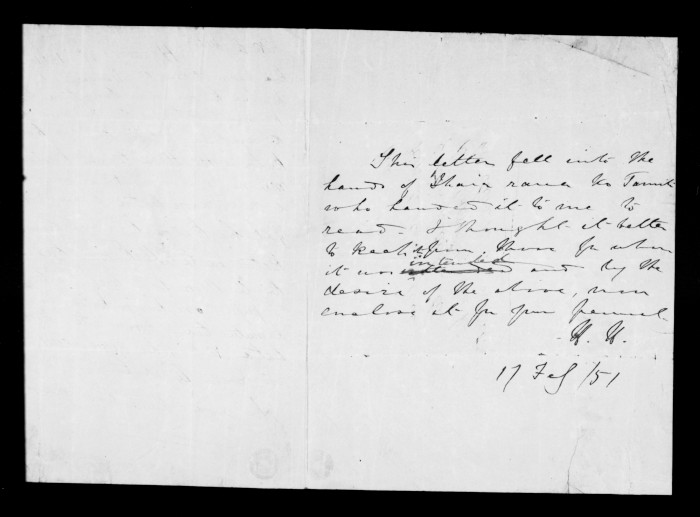 This letter fell into the
hands of Ihaia
who handed it to me to
read. I thought it better
to keep it from those for whom
it was intended and by the
desire of the above, now
enclose it for your perusal.
H. H.
17 Feb /51